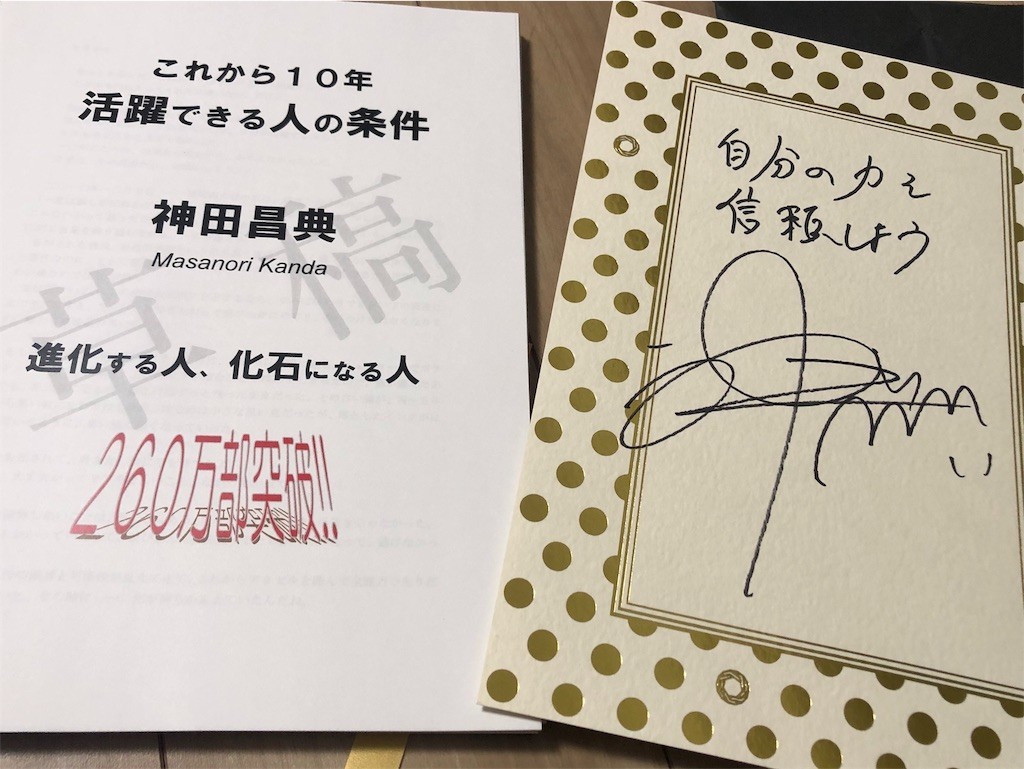 これから１０年
活躍できる人の条件
神田昌典
Masanori Kanda
草稿
進化する人、化石になる人
260万部突破!!
自分の力を
信頼しよう